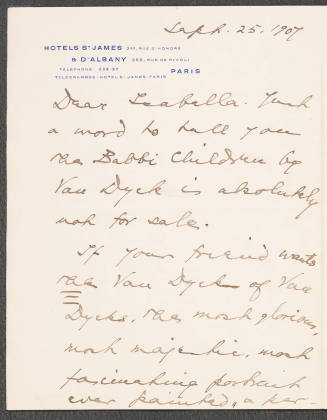 Sept. 25, 1907
HOTELS ST JAMES 211, RUE ST HONORÉ
& D'ALBANY 202, RUE DE RIVOLI
TÉLÉPHONE
PARIS
TELEGRAMMES-HOTELS-ST JAMES-PARIS
Dear Isabella. Just
a word to tell you
the Babbi Children by
Van Dyck is absolutely
not for sale.
If your friend wants
the Van Dyck of Van
Dycks, the most glorious,
most majestic, most
fascinating portrait
ever painted, a per-